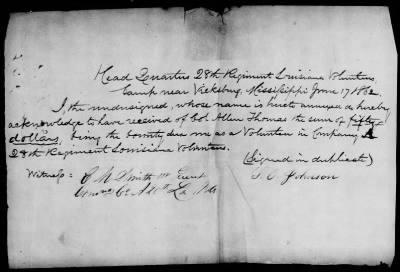 Head Quarters 28th Regiment Louisiana Volunteers
Camp near Vicksburg, Mississippi June 17 1862.
I, the undersigned, whose name is hereto annexed do hereby
acknowledge to have received of Col Allen Thomas the sum of fifty
dollars, being the bounty due me as a Volunteer in Company A
28th Regiment Louisiana Volunteers.
(Signed in duplicate)
Witness: Smith Lieut
Johnson